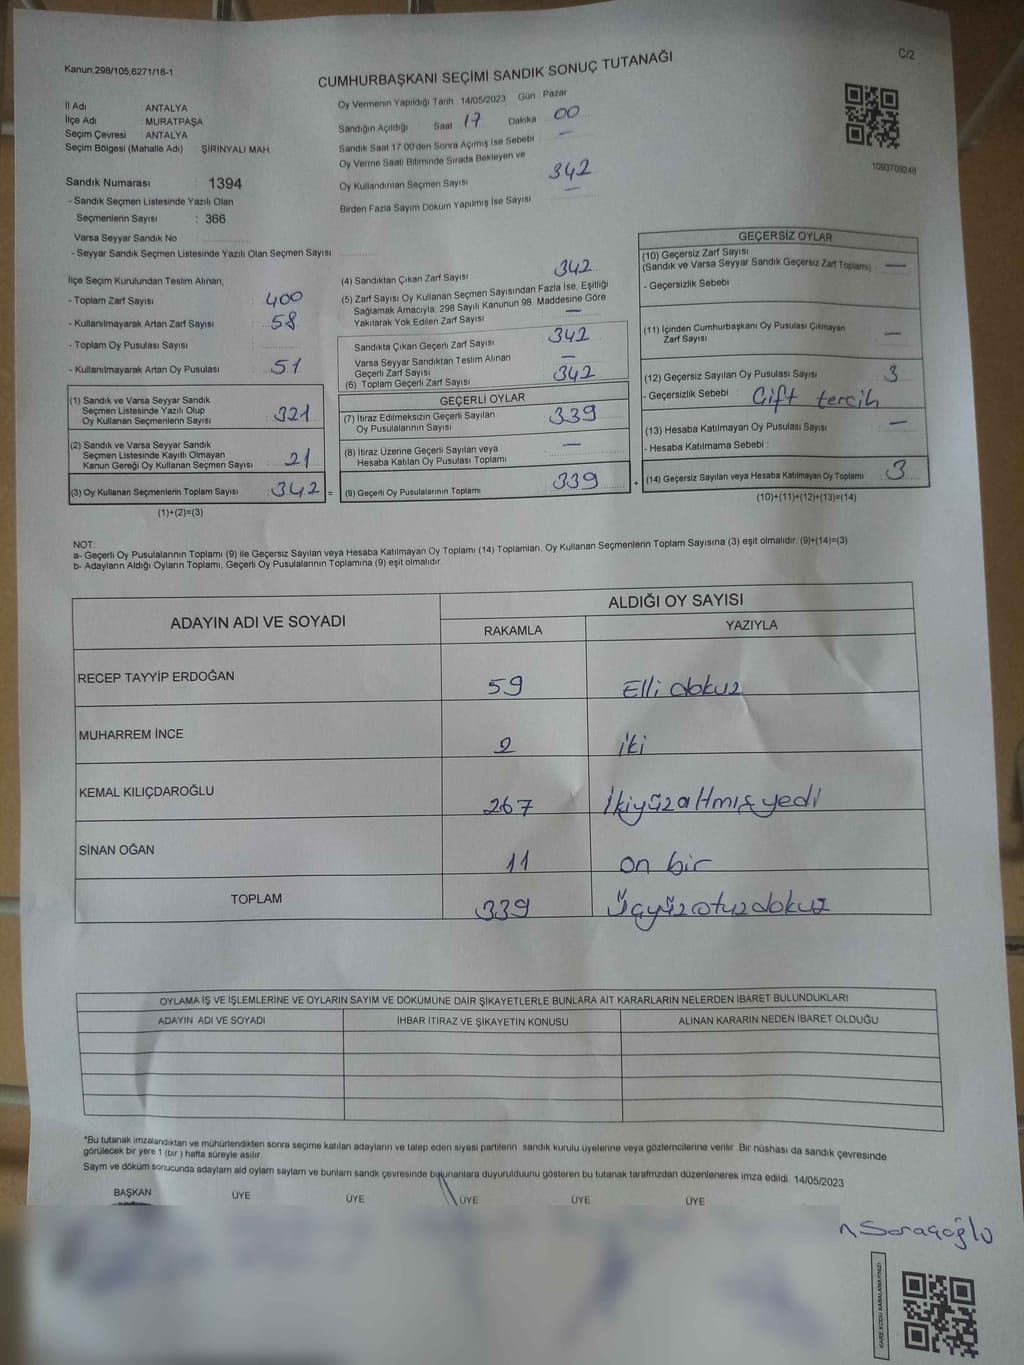 Kanun;298/105;6271/18-1
C/2
CUMHURBAŞKANI SEÇİMİ SANDIK SONUÇ TUTANAĞI
İl Adı : ANTALYA
İlçe Adı : MURATPAŞA
Seçim Çevresi : ANTALYA
Seçim Bölgesi (Mahalle Adı) ŞİRİNYALI MAH.
Sandık Numarası : 1394
- Sandık Seçmen Listesinde Yazılı Olan
Seçmenlerin Sayısı : 366
Varsa Seyyar Sandık No
- Seyyar Sandık Seçmen Listesinde Yazılı Olan Seçmen Sayısı:
Oy Vermenin Yapıldığı Tarih : 14/05/2023 Gün : Pazar
Sandığın Açıldığı Saat 17 Dakika 00
Sandık Saat 17:00'den Sonra Açımış İse Sebebi —
Oy Verme Saati Bitiminde Sırada Bekleyen ve
Oy Kullandırılan Seçmen Sayısı 342
Birden Fazla Sayım Döküm Yapılmış İse Sayısı —
1093709248
İlçe Seçim Kurulundan Teslim Alınan;
- Toplam Zarf Sayısı : 400
- Kullanılmayarak Artan Zarf Sayısı : 58
- Toplam Oy Pusulası Sayısı :
- Kullanılmayarak Artan Oy Pusulası : 51
(1) Sandık ve Varsa Seyyar Sandık
Seçmen Listesinde Yazılı Olup
Oy Kullanan Seçmenlerin Sayısı : 321
(2) Sandık ve Varsa Seyyar Sandık
Seçmen Listesinde Kayıtlı Olmayan
Kanun Gereği Oy Kullanan Seçmen Sayısı : 21
(3) Oy Kullanan Seçmenlerin Toplam Sayısı : 342 =
(1)+(2)=(3)
(4) Sandıktan Çıkan Zarf Sayısı 342
(5) Zarf Sayısı Oy Kullanan Seçmen Sayısından Fazla İse, Eşitliği
Sağlamak Amacıyla; 298 Sayılı Kanunun 98. Maddesine Göre
Yakılarak Yok Edilen Zarf Sayısı —
Sandıkta Çıkan Geçerli Zarf Sayısı 342
Varsa Seyyar Sandıktan Teslim Alınan
Geçerli Zarf Sayısı —
(6) Toplam Geçerli Zarf Sayısı 342
GEÇERLİ OYLAR
(7) İtiraz Edilmeksizin Geçerli Sayılan
Oy Pusulalarının Sayısı 339
(8) İtiraz Üzerine Geçerli Sayılan veya
Hesaba Katılan Oy Pusulası Toplamı —
(9) Geçerli Oy Pusulalarının Toplamı 339 +
GEÇERSİZ OYLAR
(10) Geçersiz Zarf Sayısı
(Sandık ve Varsa Seyyar Sandık Geçersiz Zarf Toplamı) —
- Geçersizlik Sebebi :
(11) İçinden Cumhurbaşkanı Oy Pusulası Çıkmayan
Zarf Sayısı —
(12) Geçersiz Sayılan Oy Pusulası Sayısı 3
- Geçersizlik Sebebi : Çift tercih
(13) Hesaba Katılmayan Oy Pusulası Sayısı —
- Hesaba Katılmama Sebebi :
(14) Geçersiz Sayılan veya Hesaba Katılmayan Oy Toplamı 3
(10)+(11)+(12)+(13)=(14)
NOT:
a- Geçerli Oy Pusulalarının Toplamı (9) ile Geçersiz Sayılan veya Hesaba Katılmayan Oy Toplamı (14) Toplamları, Oy Kullanan Seçmenlerin Toplam Sayısına (3) eşit olmalıdır. (9)+(14)=(3)
b- Adayların Aldığı Oyların Toplamı, Geçerli Oy Pusulalarının Toplamına (9) eşit olmalıdır.
ADAYIN ADI VE SOYADI ALDIĞI OY SAYISI
RAKAMLA YAZIYLA
RECEP TAYYİP ERDOĞAN 59 Elli dokuz
MUHARREM İNCE 2 iki
KEMAL KILIÇDAROĞLU 267 İkiyüzaltmış yedi
SİNAN OĞAN 11 on bir
TOPLAM 339 Üçyüzotuzdokuz
OYLAMA İŞ VE İŞLEMLERİNE VE OYLARIN SAYIM VE DÖKÜMÜNE DAİR ŞİKAYETLERLE BUNLARA AİT KARARLARIN NELERDEN İBARET BULUNDUKLARI
ADAYIN ADI VE SOYADI İHBAR İTİRAZ VE ŞİKAYETİN KONUSU ALINAN KARARIN NEDEN İBARET OLDUĞU
*Bu tutanak imzalandıktan ve mühürlendikten sonra seçime katılan adayların ve talep eden siyasi partilerin sandık kurulu üyelerine veya gözlemcilerine verilir. Bir nüshası da sandık çevresinde
görülecek bir yere 1 (bir ) hafta süreyle asılır.
Saym ve döküm sonucunda adaylarn ald oylarn saylarn ve bunlarn sandk çevresinde bulunanlara duyurulduunu gösteren bu tutanak tarafmzdan düzenlenerek imza edildi. 14/05/2023
BAŞKAN ÜYE ÜYE ÜYE ÜYE ÜYE
n Saraçoğlu
KARE KODU KARALAMAYINIZ!